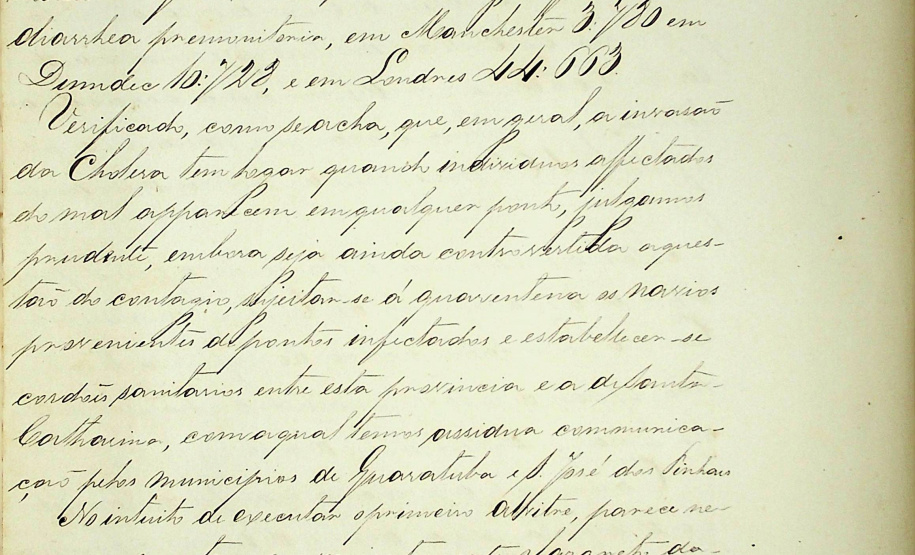 diarrhea premonitoria, em Manchester 3:780 em
Dumdec 10:728, e em Londres 44:663.
Verificado, como se acha, que, em geral, a invasaõ
da Cholera tem logar quando individuos affectados
do mal apparecem em qualquer ponto, julgamos
prudente, embora seja ainda controvertida a ques-
taõ do contagio, sujeitar-se á quarentena os navios
provenientes de pontos infectados e estabellecer-se
cordoẽs sanitarios entre esta provincia e a de Santa-
Catharina, com a qual temos assidua communica-
çaõ pelos municipios de Guaratuba e S. José dos Pinhaes
No intuito de executar o primeiro alvitre, parece ne-